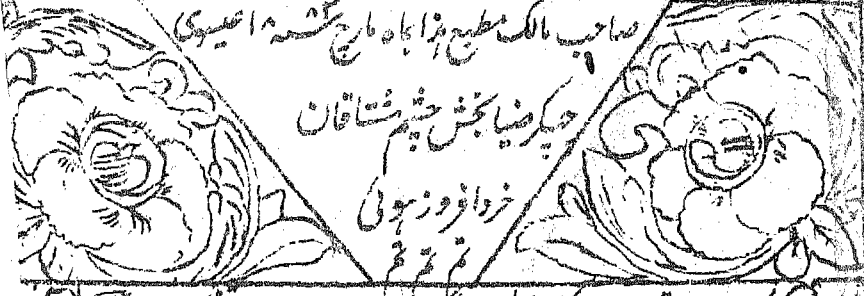 صاحب مالک مطبع ہذا بماہ مارچ عیسوی
چھپکر ضیا بخش چشم مشتاقان
خرد افروز ہوئی
تم تم تم